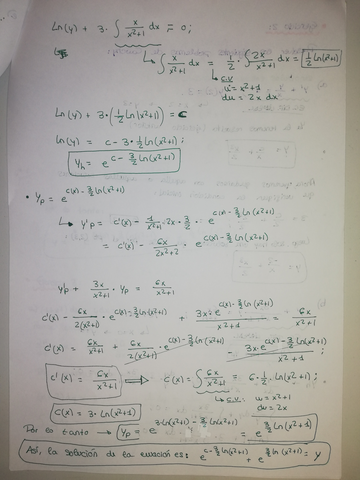 Ln(y) + 3 · ∫ x/(x²+1) dx = 0;
∫ x/(x²+1) dx = 1/2 · ∫ 2x/(x²+1) dx = 1/2 ln(x²+1)
C.V
u = x²+1
du = 2x dx
Ln(y) + 3·(1/2 ln(x²+1)) = C
ln(y) = c - 3·1/2 ln(x²+1);
y_h = e^(c - 3/2 ln(x²+1))
• y_p = e^(c(x) - 3/2 ln(x²+1))
↳ y'_p = c'(x) - 1/(x²+1) · 2x · 3/2 · e^(c(x) - 3/2 ln(x²+1))
= c'(x) - 6x/(2x²+2) · e^(c(x) - 3/2 ln(x²+1))
y'_p + 3x/(x²+1) · y_p = 6x/(x²+1)
c'(x) - 6x/(2(x²+1)) · e^(c(x) - 3/2 ln(x²+1)) + (3x · e^(c(x) - 3/2 ln(x²+1)))/(x²+1) = 6x/(x²+1)
c'(x) = 6x/(x²+1) + 6x/(2(x²+1)) · e^(c(x) - 3/2 ln(x²+1)) - (3x · e^(c(x) - 3/2 ln(x²+1)))/(x²+1);
c'(x) = 6x/(x²+1) ⇒ c(x) = ∫ 6x/(x²+1) = 6 · 1/2 · ln(x²+1);
C.V: u = x²+1
du = 2x
c(x) = 3 · ln(x²+1)
Por lo tanto → y_p = e^(3 ln(x²+1) - 3/2 ln(x²+1)) = e^(3/2 ln(x²+1))
Así, la solución de la ecuación es: e^(c - 3/2 ln(x²+1)) + e^(3/2 ln(x²+1)) = y